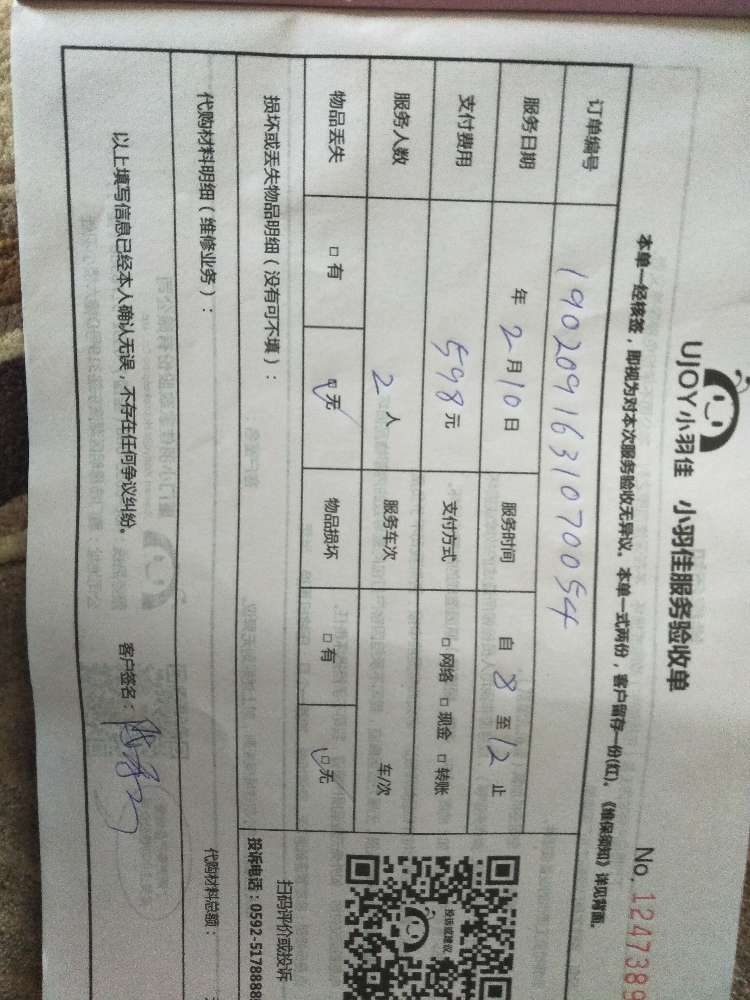 UJOY小羽佳 小羽佳服务验收单
No. 1247389
本单一经核签，即视为对本次服务验收无异议。本单一式两份，客户留存一份(红)。《维保须知》详见背面。
订单编号 1902091631070054
服务日期 年 2 月 10 日 服务时间 自 8 至 12 止
支付费用 598 元 支付方式 □ 网络 □ 现金 □ 转账
服务人数 2 人 服务车次 车/次
物品丢失 □ 有 □ 无 物品损坏 □ 有 □ 无
损坏或丢失物品明细（没有可不填）：
投诉或建议
扫码评价或投诉
投诉电话：0592-5178888
代购材料明细（维修业务）：
代购材料总额：
以上填写信息已经本人确认无误，不存在任何争议纠纷。 客户签名：